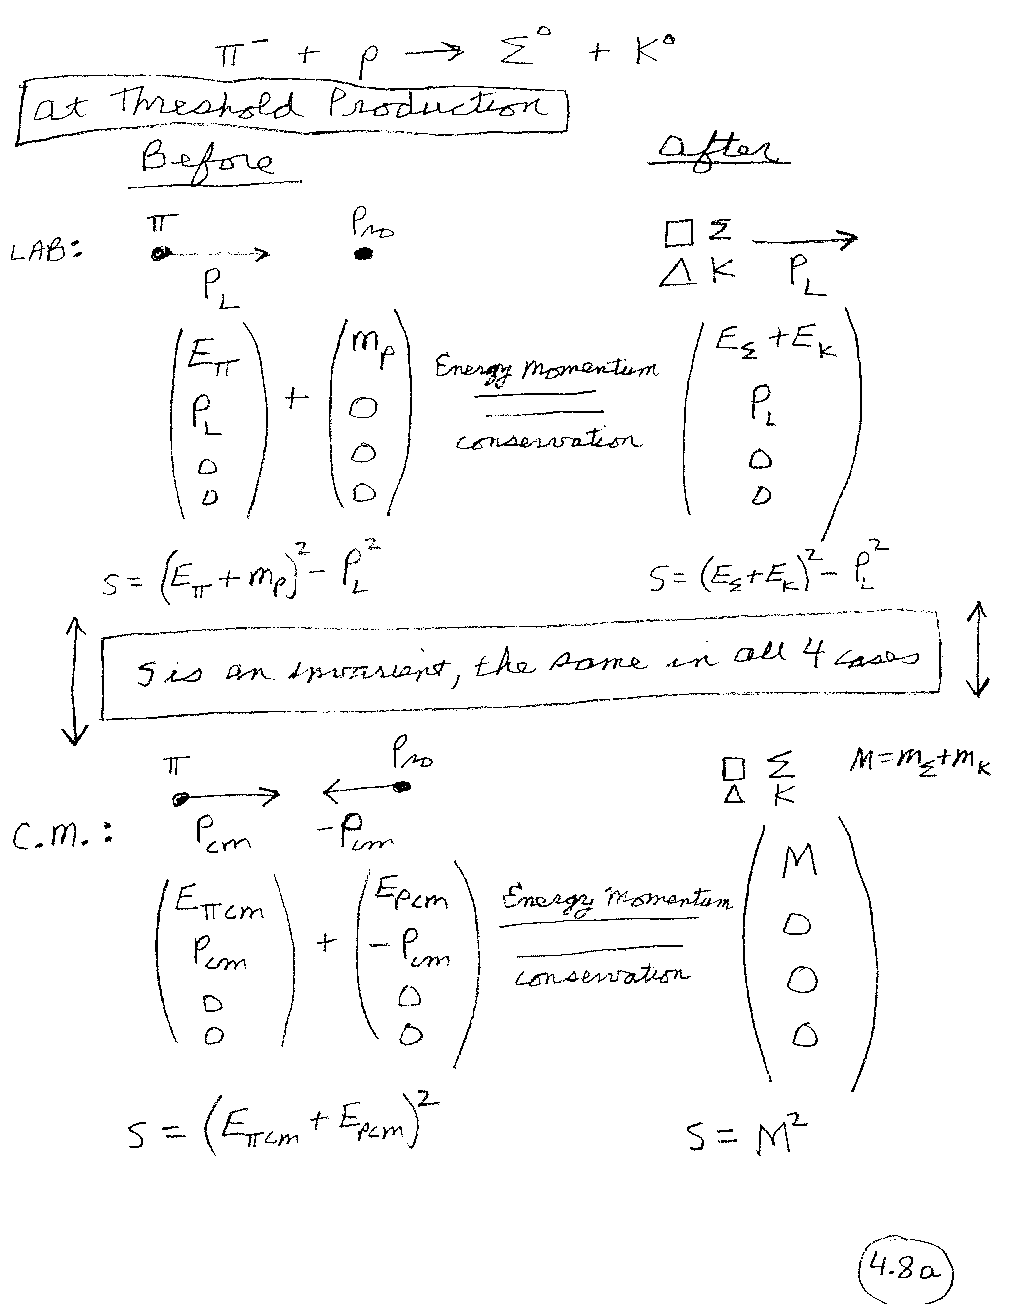 π⁻ + p → Σ⁰ + K⁰
at Threshold Production
Before
After
LAB:
π
Pro
□ Σ
P_L
△ K
P_L
E_π
P_L
0
0
+
m_p
0
0
0
Energy Momentum
conservation
E_Σ + E_K
P_L
0
0
S = (E_π + m_p)² - P_L²
S = (E_Σ + E_K)² - P_L²
S is an invarient, the same in all 4 cases
π
Pro
□ Σ
M = m_Σ + m_K
△ K
C.M.:
P_cm
-P_cm
E_πcm
P_cm
0
0
+
E_pcm
-P_cm
0
0
Energy Momentum
conservation
M
0
0
0
S = (E_πcm + E_pcm)²
S = M²
4.8a